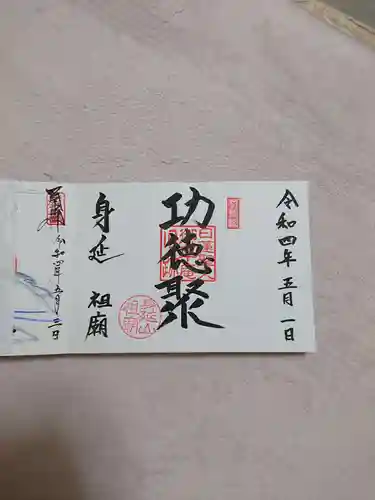 令和四年五月一日
功徳聚
身延 祖廟
令和四年五月三日